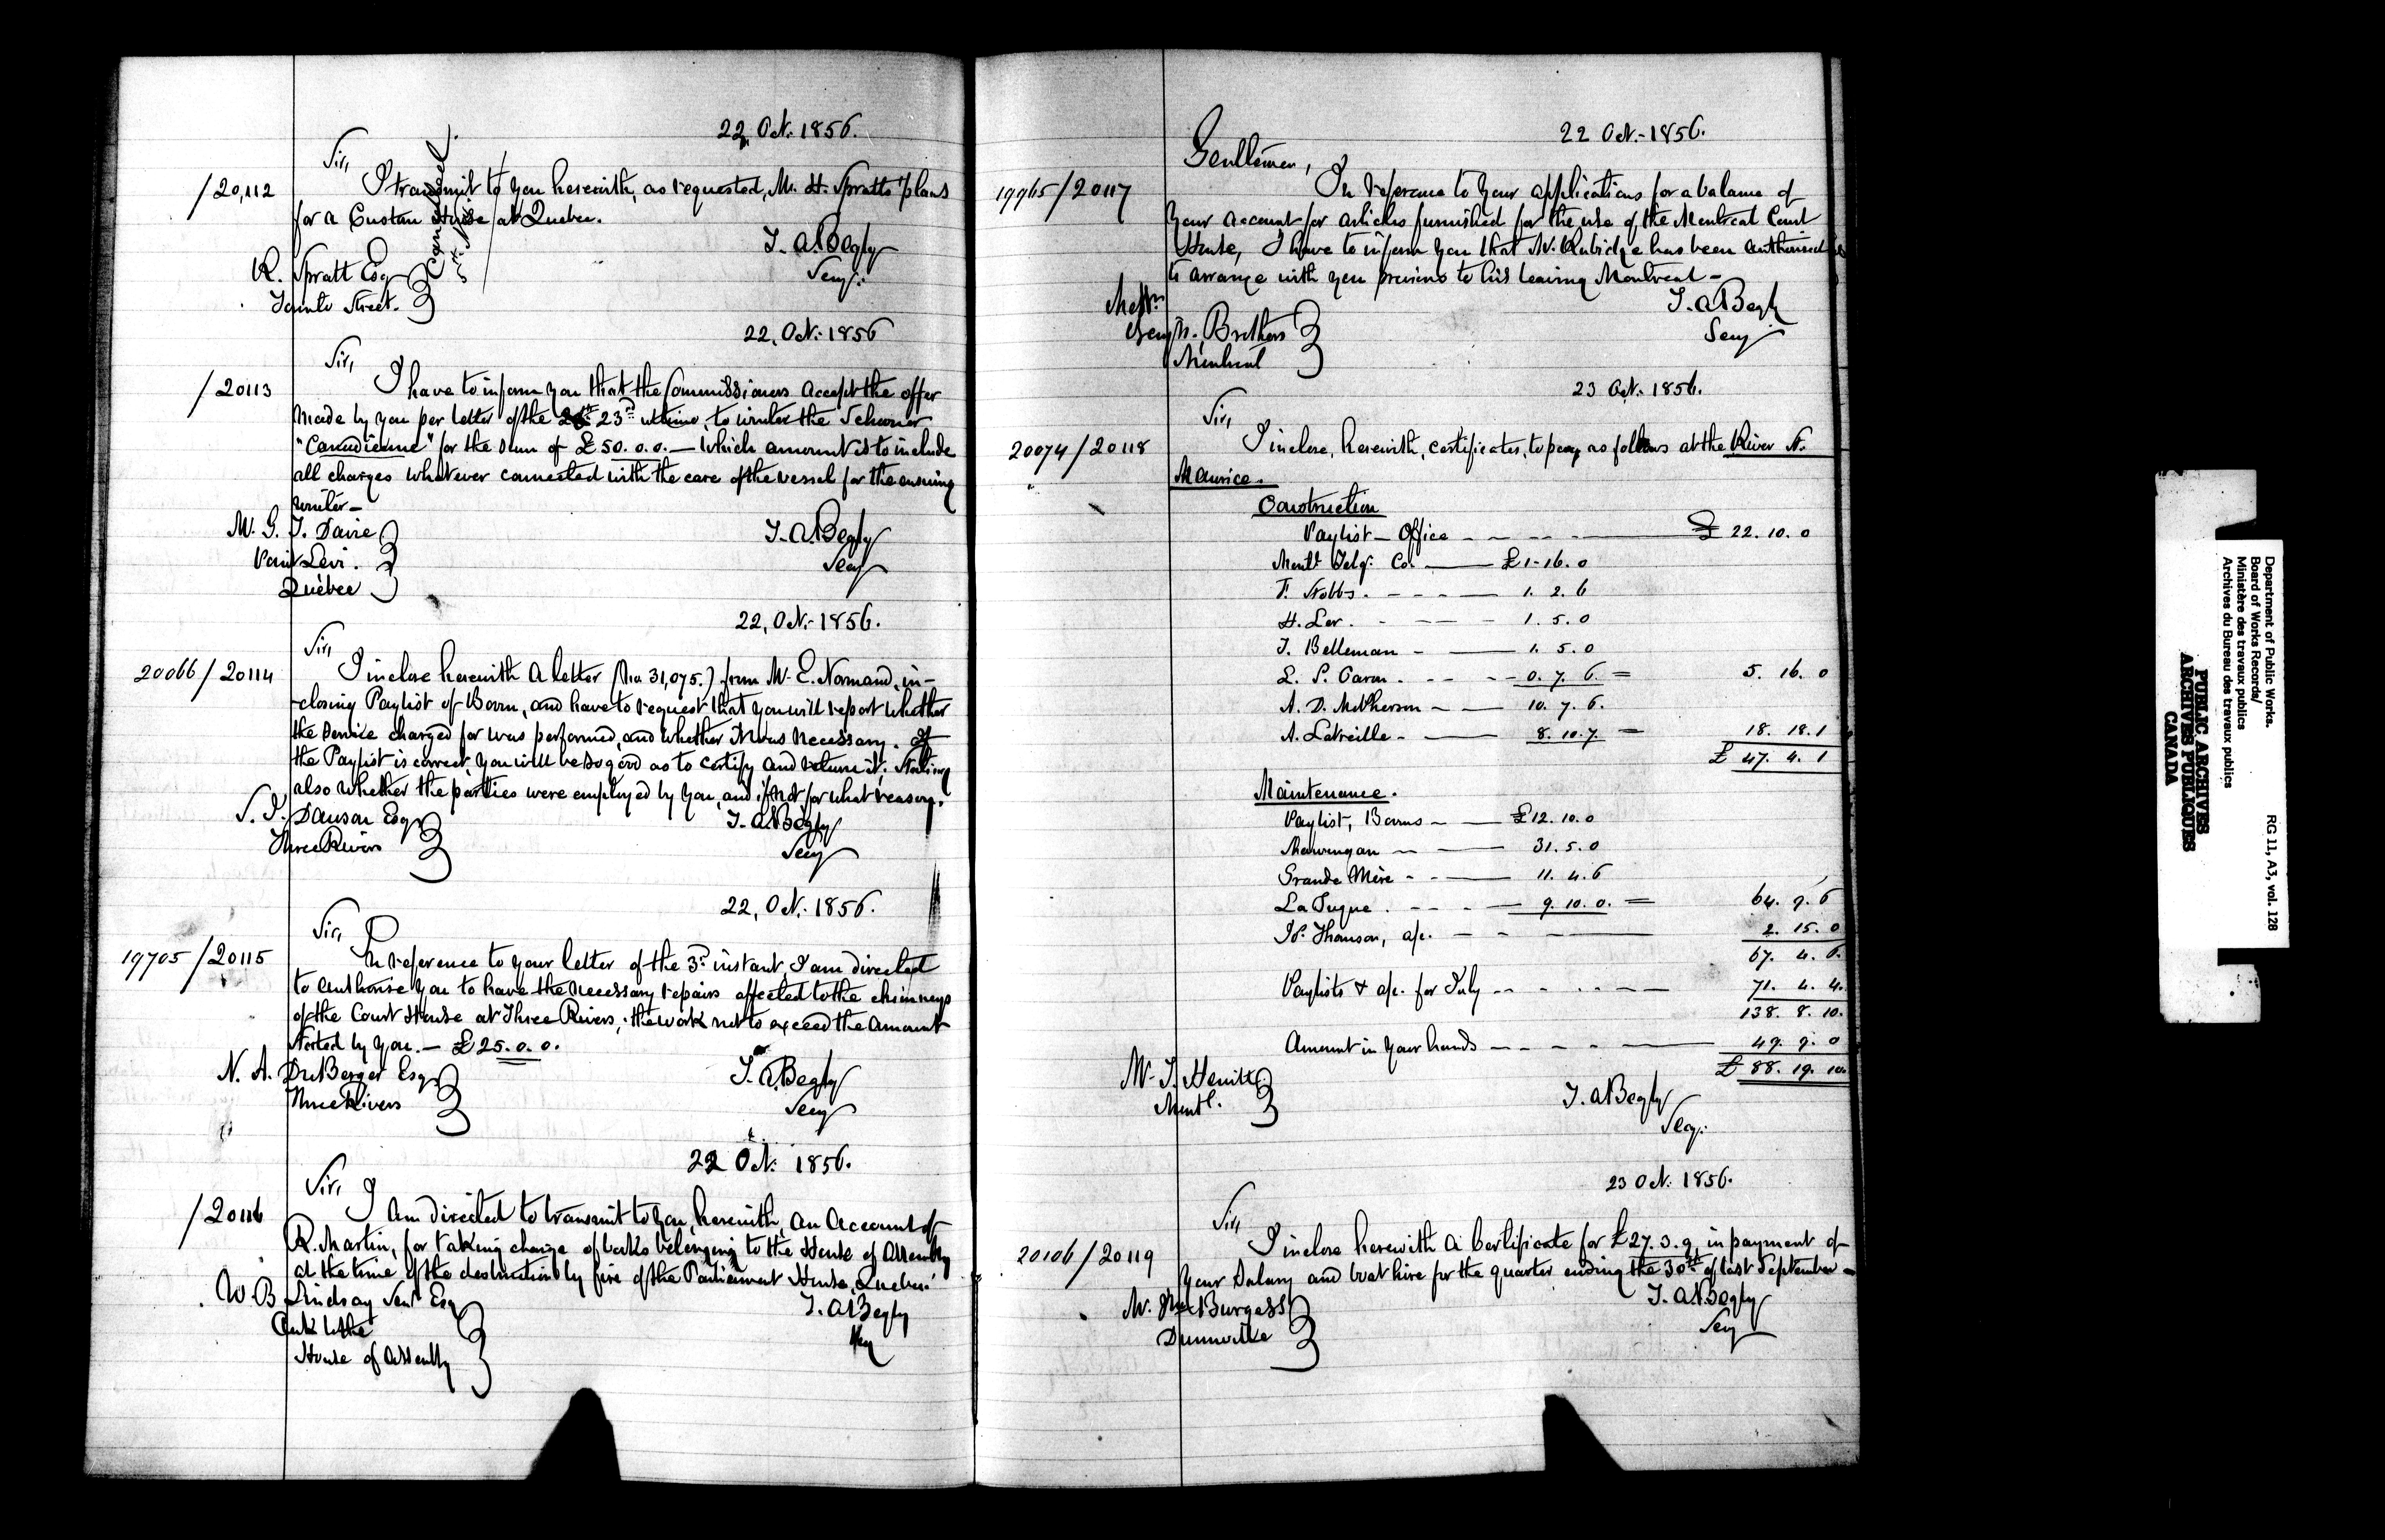 22, Oct: 1856.
Sir,
/20,112
I transmit to you herewith, as requested, Mr. H. Spratts plans
for a Custom House at Quebec.
Cancelled.
T. A. Begly
Secy:
R. Spratt Esq
Toronto Street.
22, Oct: 1856
Sir,
/20113
I have to inform you that the Commissioners accept the offer
made by you per letter of the 23rd ultimo, to winter the Schooner
"Canadienne" for the sum of £50.0.0. — which amount is to include
all charges whatever connected with the care of the vessel for the ensuing
winter —
Mr. G. T. Davie
Point Levi.
Québec
T. A. Begly
Secy
22, Oct:- 1856.
Sir,
20066/20114
I inclose herewith a letter (No. 31,075.) from Mr. E. Normand, in-
-closing Paylist of Boom, and have to request that you will report whether
the service charged for was performed, and whether it was necessary. If
the Paylist is correct, you will be so good as to certify and return it; stating
also whether the parties were employed by you, and if not for what reason.
S. J. Dawson Esq
Three Rivers
T. A. Begly
Secy
22, Oct: 1856.
Sir,
19705/20115
In reference to your letter of the 3rd instant, I am directed
to authorise you to have the necessary repairs effected to the chimneys
of the Court House at Three Rivers; the work not to exceed the amount
stated by you. — £25.0.0.
N. A. DuBerger Esq
Three Rivers
T. A. Begly
Secy
22 Oct: 1856.
Sir, I
/20116
am directed to transmit to you, herewith, an Account of
R. Martin, for taking charge of books belonging to the House of Assembly
at the time of the destruction by fire of the Parliament House, Quebec.
W. B Lindsay Senr Esq
Clerk to the
House of Assembly
T. A. Begly
Secy
22 Oct:- 1856.
Gentlemen,
19965/20117
In reference to your applications for a balance of
your account for articles furnished for the use of the Montreal Court
House, I have to inform you that Mr. Rubidge has been authorised
to arrange with you previous to his leaving Montreal —
Messrs
Brothers
Montreal
T. A Begly
Secy
23 Oct: 1856.
Sir,
20074/20118
I inclose, herewith, certificates, to pay as follows at the River St.
Maurice.
Construction
Paylist — Office - - - - £ 22. 10. 0
Montl Telgh Co. — £1-16. 0
F. Stobbs. - - - — 1. 2. 6
H. Ler. - - - - 1. 5. 0
J. Belleman - — 1. 5. 0
L. P. Caron. - - - 0. 7. 6. = 5. 16. 0
A. D. McPherson - — 10. 7. 6.
A. Latreille - — 8. 10. 7 = 18. 18. 1
£ 47. 4. 1
Maintenance.
Paylist, Booms — £12. 10. 0
Shawenegan — 31. 5. 0
Grande Mère - - — 11. 4. 6
La Tuque. - - - — 9. 10. 0. = 64. 9. 6
Thomson, a/c. - - — 2. 15. 0
67. 4. 6.
Paylists & a/c. for July - - - - 71. 4. 4.
138. 8. 10.
Amount in your hands - - - - — 49. 9. 0
£ 88. 19. 10.
Mr. J. Hewitt
Montl.
T. A Begly
Secy:
23 Oct: 1856.
Sir,
20106/20119
I inclose herewith a Certificate for £27. 3. 9, in payment of
your Salary and boat hire for the quarter ending the 30th of last September —
Burgess
Dunnville
T. A. Begly
Secy
Department of Public Works.
Board of Works Records/
Ministère des travaux publics
Archives du Bureau des travaux publics
RG 11, A3, vol. 128
PUBLIC ARCHIVES
ARCHIVES PUBLIQUES
CANADA